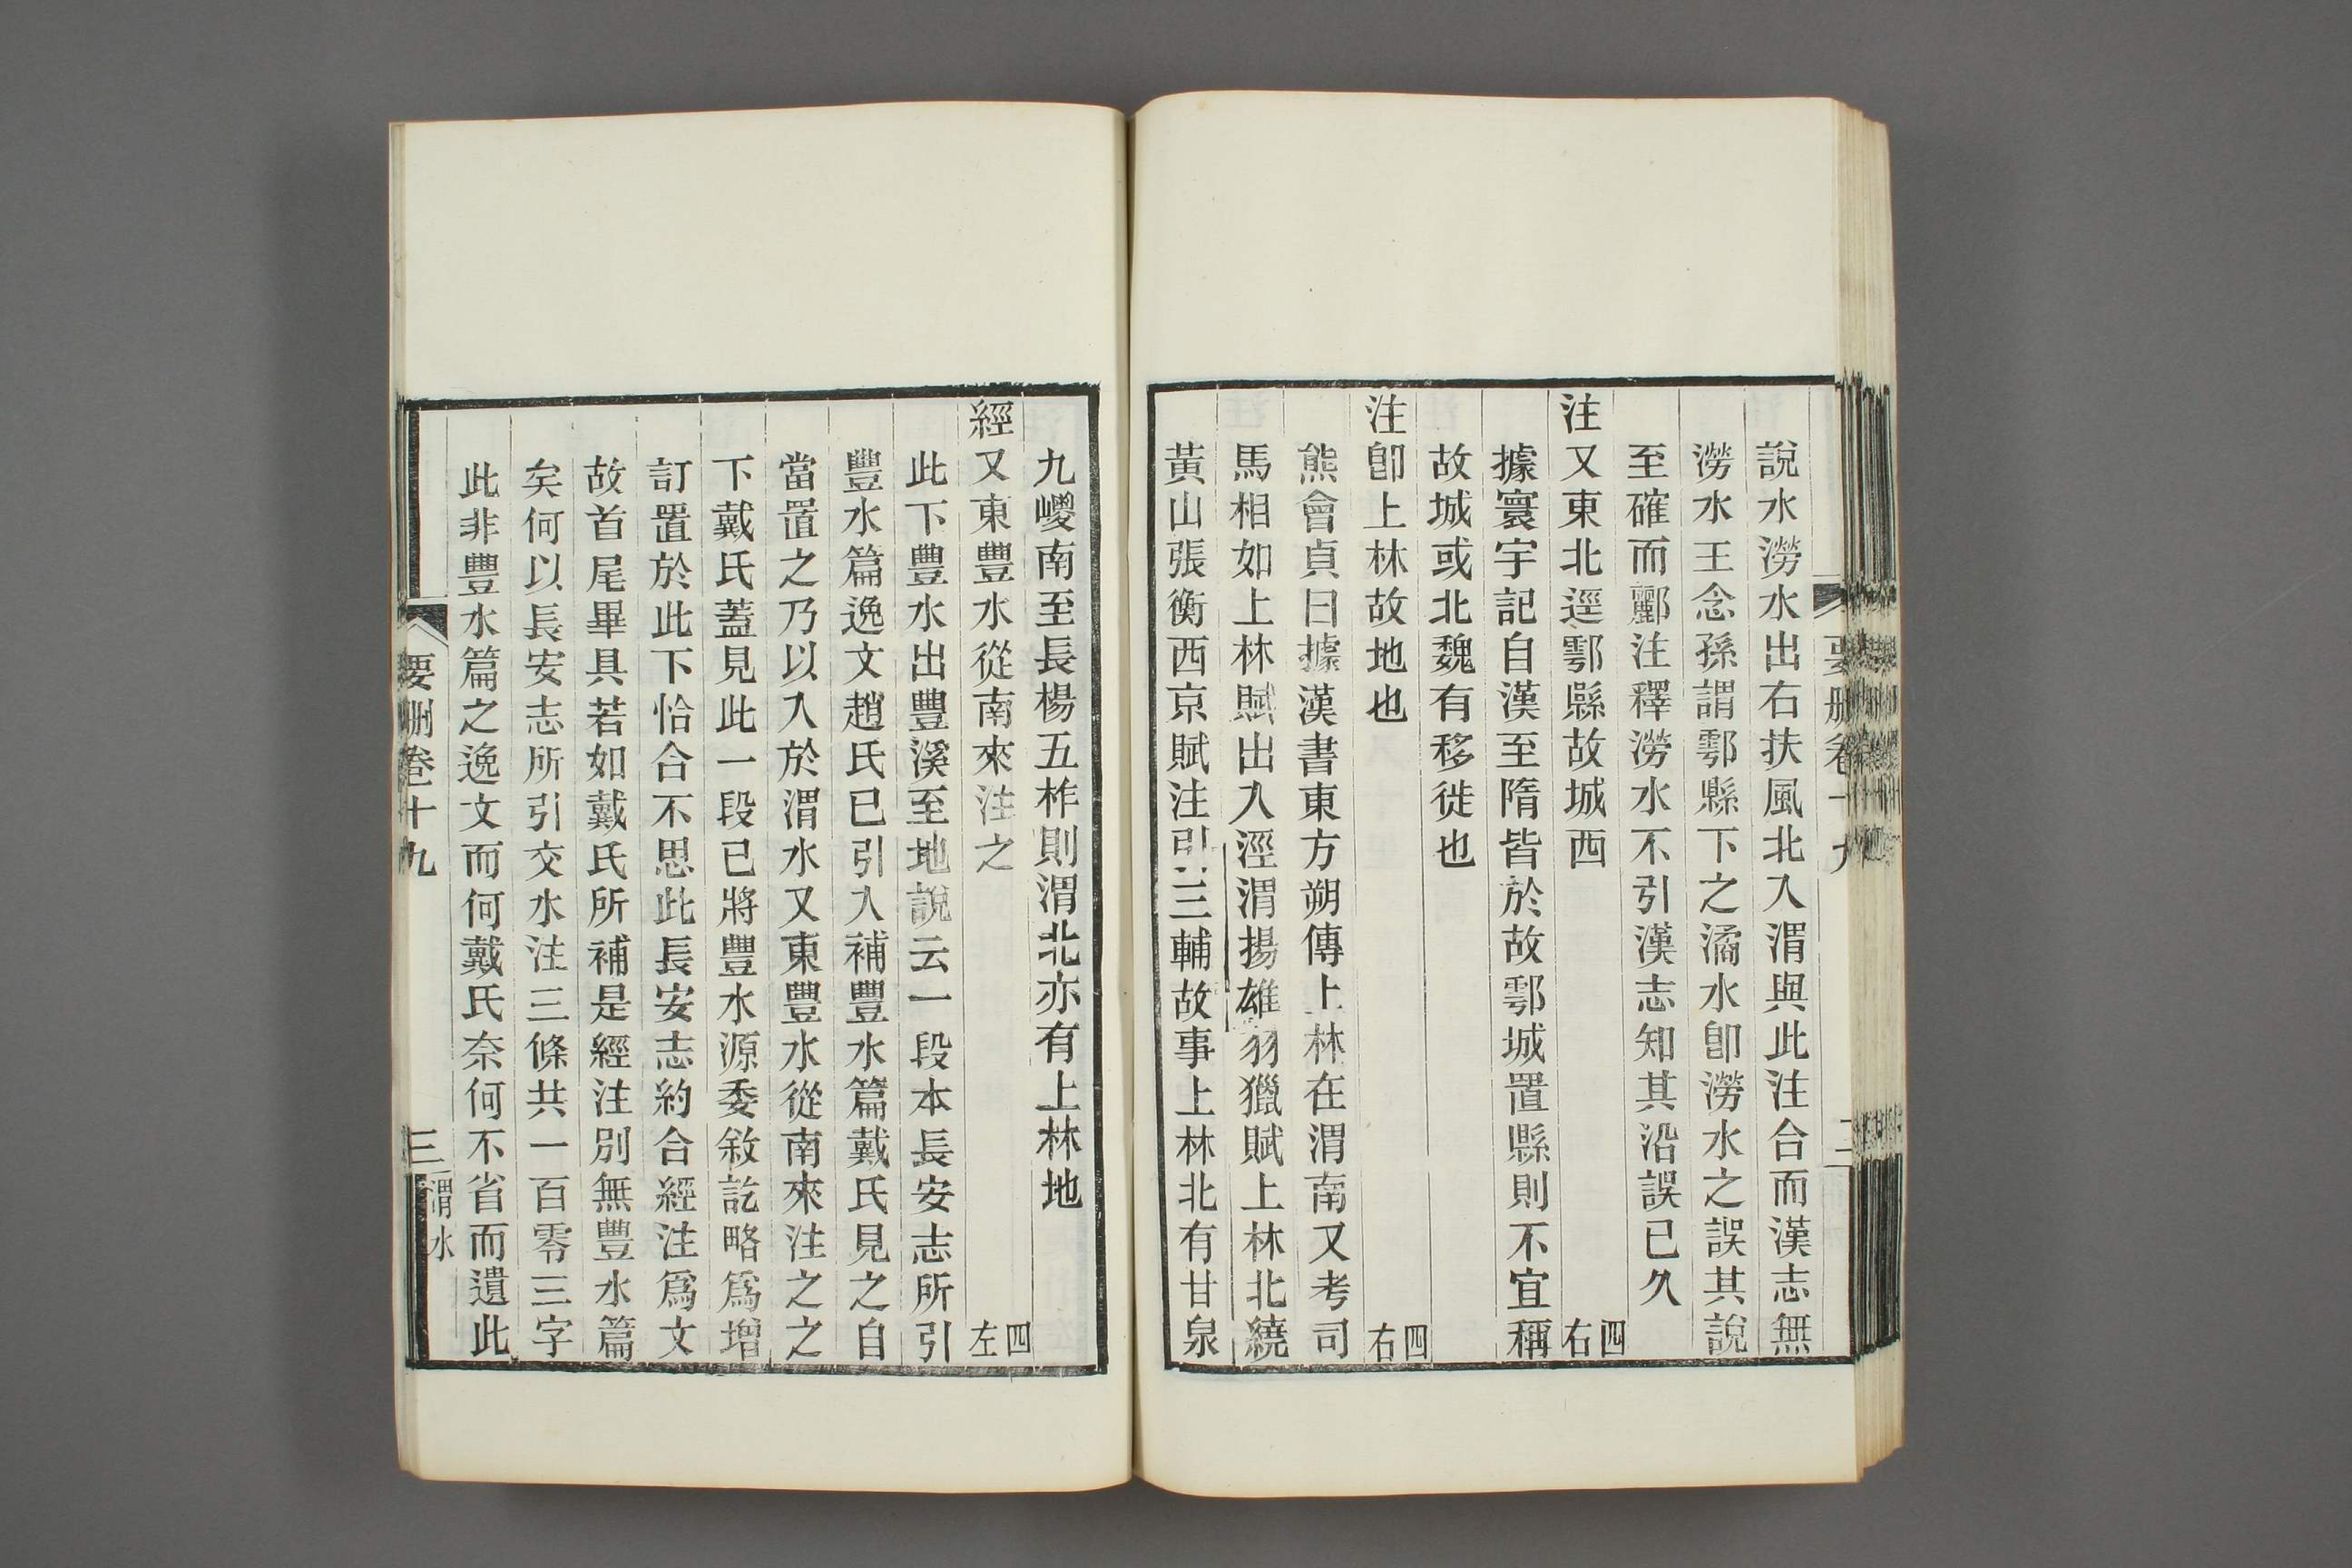 說水澇水出右扶風北入渭與此注合而漢志無
澇水王念孫謂鄠縣下之潏水卽澇水之誤其說
至確而酈注釋澇水不引漢志知其沿誤已久
注又東北逕鄠縣故城西 四右
據寰宇記自漢至隋皆於故鄠城置縣則不宜稱
故城或北魏有移徙也
注卽上林故地也 四右
熊會貞曰據漢書東方朔傳上林在渭南又考司
馬相如上林賦出入涇渭揚雄羽獵賦上林北繞
黃山張衡西京賦注引三輔故事上林北有甘泉
九嵕南至長楊五柞則渭北亦有上林地
經又東豐水從南來注之 四左
此下豐水出豐溪至地說云一段本長安志所引
豐水篇逸文趙氏已引入補豐水篇戴氏見之自
當置之乃以入於渭水又東豐水從南來注之之
下戴氏蓋見此一段已將豐水源委敘訖略爲增
訂置於此下恰合不思此長安志約合經注爲文
故首尾畢具若如戴氏所補是經注別無豐水篇
矣何以長安志所引交水注三條共一百零三字
此非豐水篇之逸文而何戴氏奈何不省而遺此
要刪卷十九 三 渭水